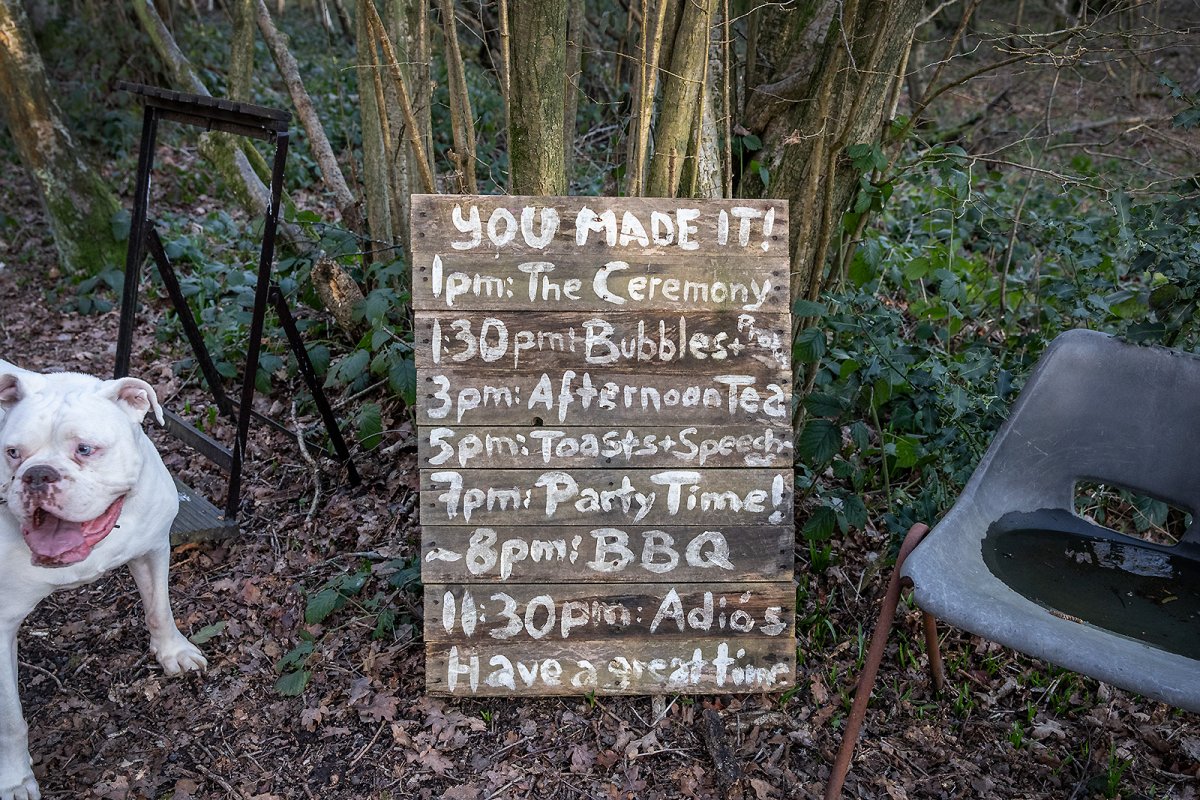 YOU MADE IT!
1pm: The Ceremony
1:30pm: Bubbles +
3pm: Afternoon Tea
5pm: Toasts + Speech
7pm: Party Time!
~8pm: BBQ
11:30pm: Adiós
Have a great time